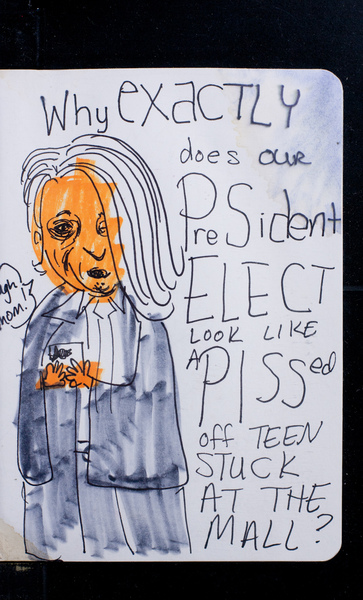 Why exACTLY
does our
PreSident
ELECT
LOOK LIKE
A PISSed
off TEEN
STUCK
AT THE
MALL?
ugh
mom!